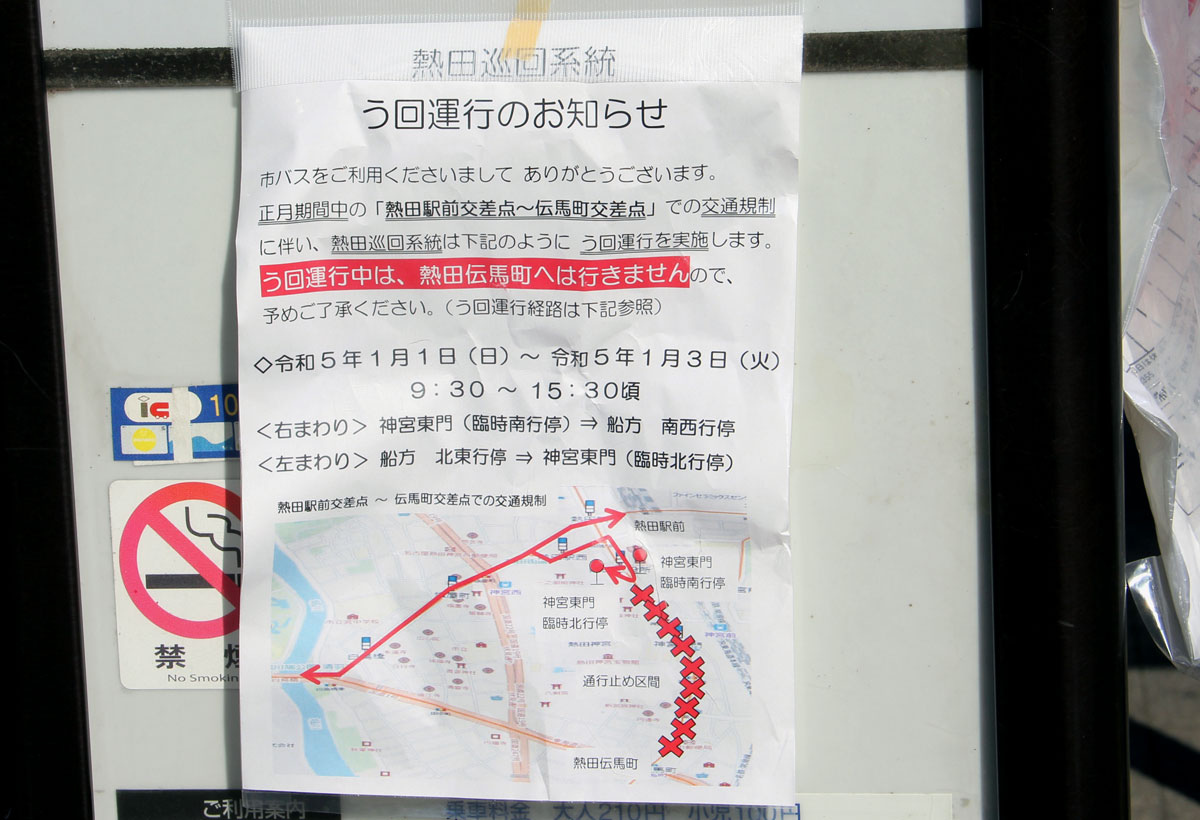 熱田巡回系統
う回運行のお知らせ
市バスをご利用くださいまして ありがとうございます。
正月期間中の「熱田駅前交差点～伝馬町交差点」での交通規制
に伴い、熱田巡回系統は下記のように う回運行を実施します。
う回運行中は、熱田伝馬町へは行きませんので、
予めご了承ください。（う回運行経路は下記参照）
◇令和５年１月１日（日）～ 令和５年１月３日（火）
９：３０ ～ １５：３０頃
＜右まわり＞ 神宮東門（臨時南行停）⇒ 船方 南西行停
＜左まわり＞ 船方 北東行停 ⇒ 神宮東門（臨時北行停）
熱田駅前交差点 ～ 伝馬町交差点での交通規制
熱田駅前
神宮東門
臨時南行停
神宮東門
臨時北行停
通行止め区間
熱田伝馬町
10
禁
No Smokin
ご利用案内
乗車料金 大人210円 小児100円